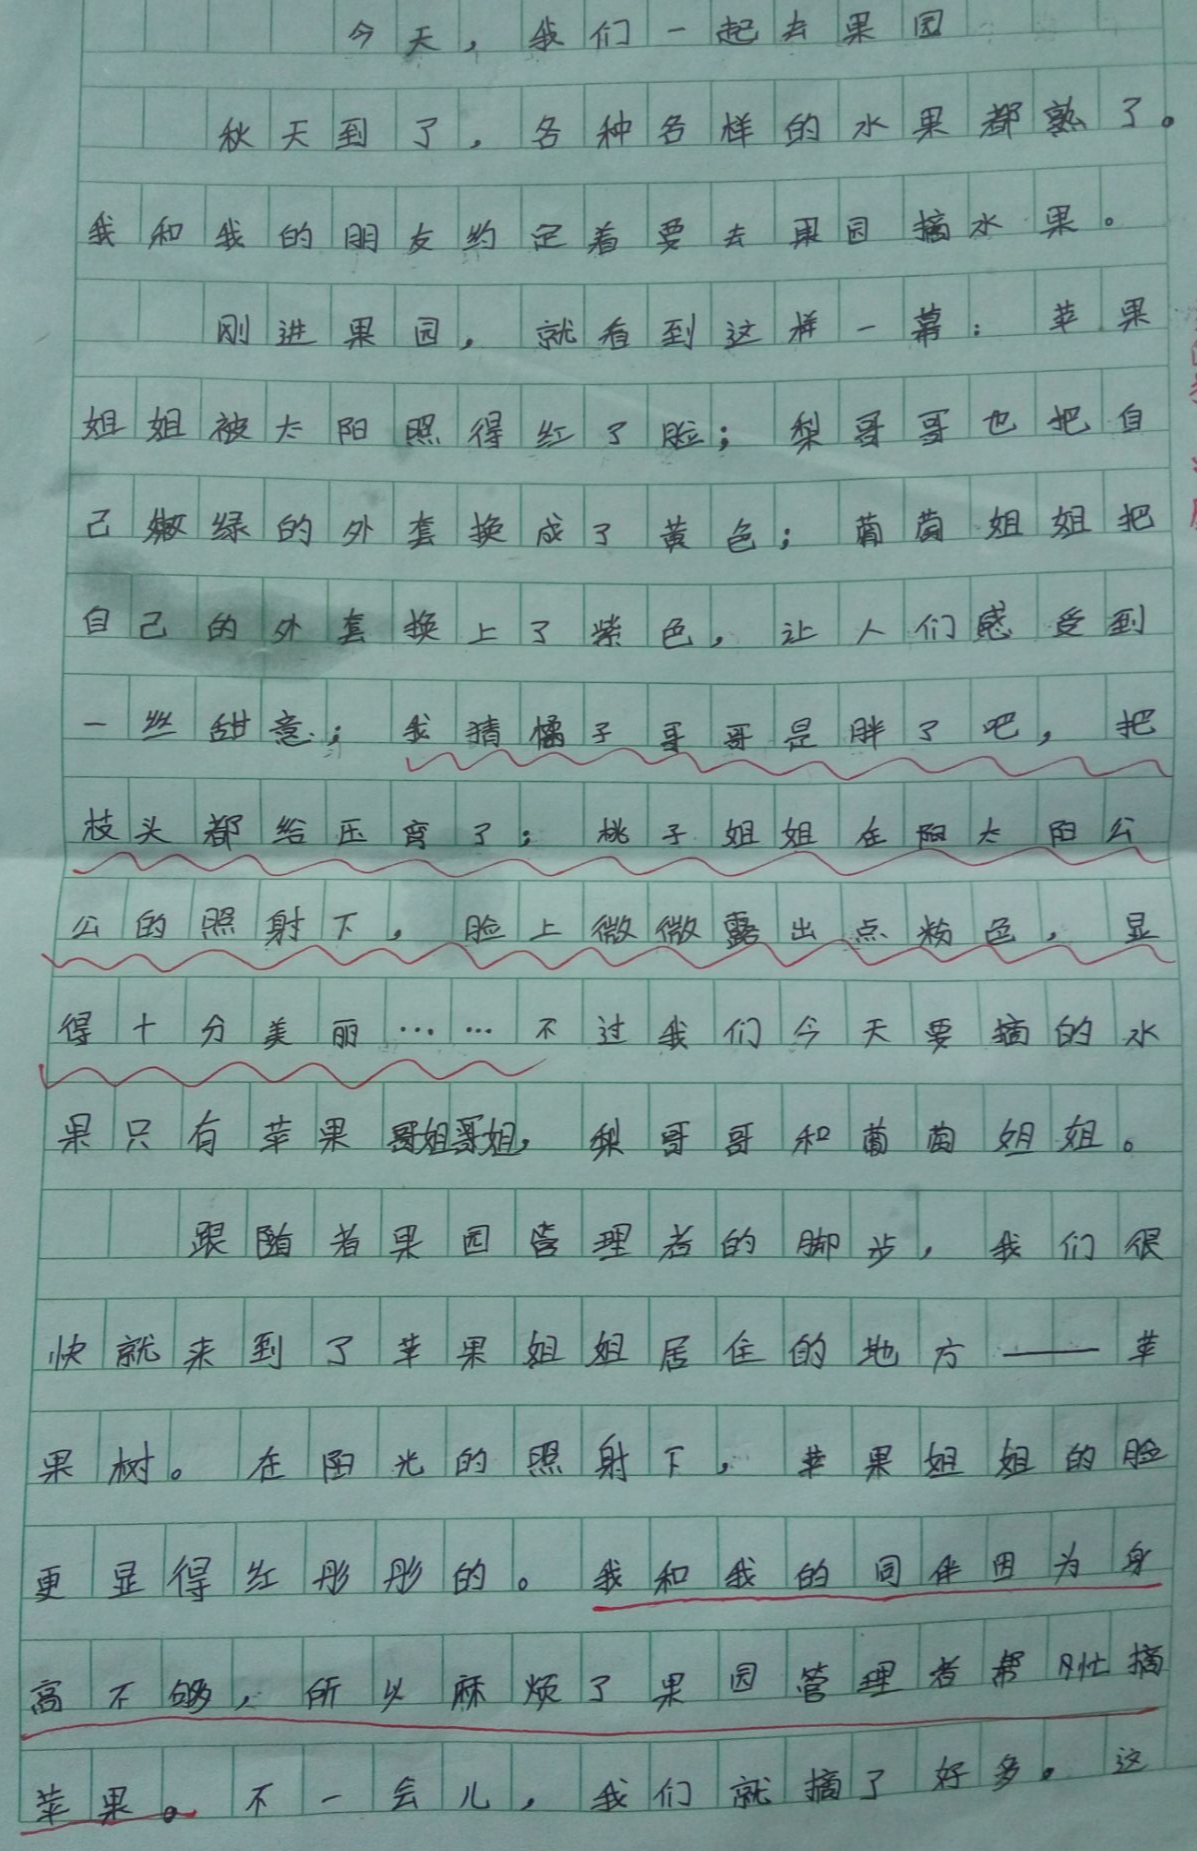 今天，我们一起去果园
秋天到了，各种各样的水果都熟了。
我和我的朋友约定着要去果园摘水果。
刚进果园，就看到这样一幕：苹果
姐姐被太阳照得红了脸；梨哥哥也把自
己嫩绿的外套换成了黄色；葡萄姐姐把
自己的外套换上了紫色，让人们感受到
一丝甜意；我猜橘子哥哥是胖了吧，把
枝头都给压弯了；桃子姐姐在阳太阳公
公的照射下，脸上微微露出点粉色，显
得十分美丽……不过我们今天要摘的水
果只有苹果哥姐哥姐，梨哥哥和葡萄姐姐。
跟随着果园管理者的脚步，我们很
快就来到了苹果姐姐居住的地方——苹
果树。在阳光的照射下，苹果姐姐的脸
更显得红彤彤的。我和我的同伴因为身
高不够，所以麻烦了果园管理者帮忙摘
苹果。不一会儿，我们就摘了好多。这